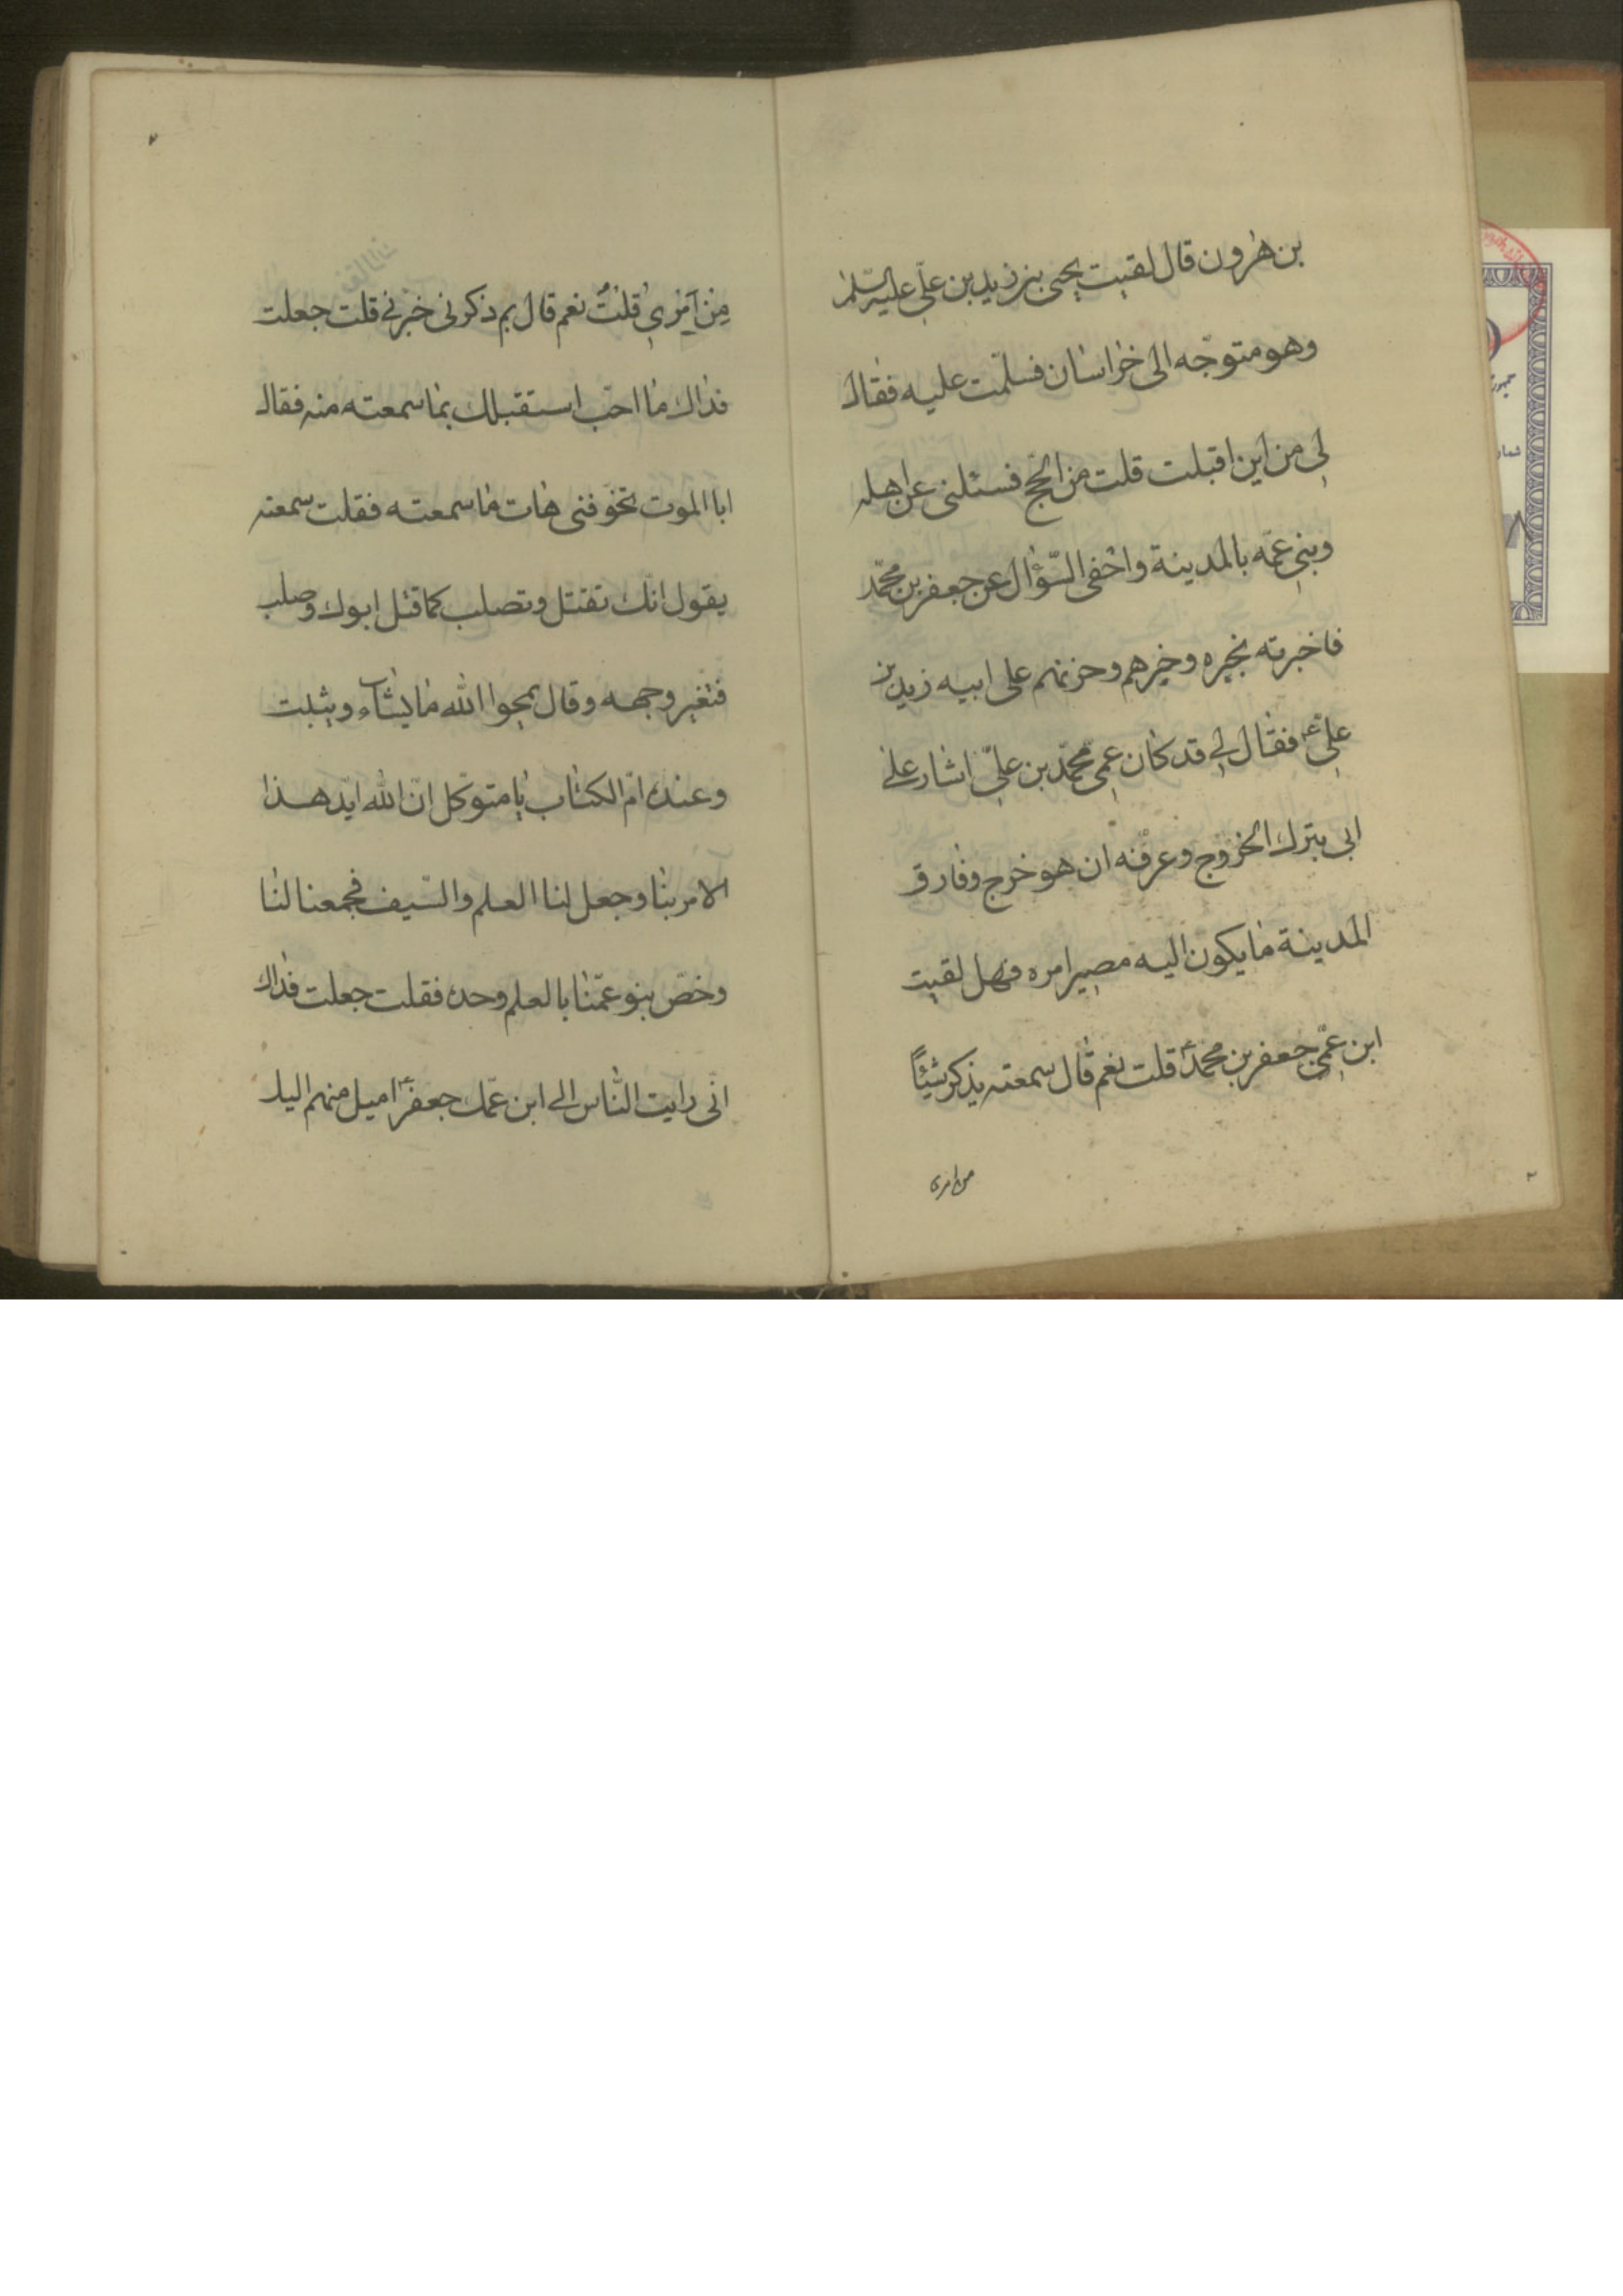 بن هرون قال لقيت يحيى بن زيد بن علىّ عليه السّلم
وهو متوجّه الى خراسان فسلّمت عليه فقال
لى من اين اقبلت قلت من الحجّ فسئلنى عن اهله
وبنى عمّه بالمدينة واحفى السّؤال عن جعفر بن محمّد
فاخبرته بخبره وخبرهم وحزنهم على ابيه زيد بن
علىّ ع فقال لى قد كان عمّى محمّد بن علىّ اشار على
ابى بترك الخروج وعرفنه ان هو خرج وفارق
المدينة ما يكون اليه مصير امره فهل لقيت
ابن عمّى جعفر بن محمّد ع قلت نعم قال سمعته يذكر شيئًا
من امرى
مِن اَمرى قلتُ نعم قال بم ذكرنى خبّرنى قلت جعلت
فداك ما احبّ استقبلك بما سمعته منه فقال
اباالموت تخوّفنى هات ما سمعته فقلت سمعته
يقول انّك تقتل وتصلب كما قتل ابوك وصلب
فتغير وجهه وقال يمحوا الله ما يشاء ويثبت
وعنده امّ الكتاب يا متوكّل انّ الله ايّد هذا
الامر بنا وجعل لنا العلم والسّيف فجمعنا لنا
وخصّ بنو عمّنا بالعلم وحده فقلت جعلت فداك
انّى رايت النّاس الى ابن عمّك جعفر ع اميل منهم اليك